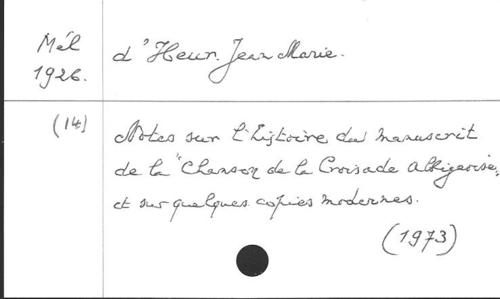 Mél
1926.
d'Heur. Jean Marie.
(14)
Notes sur l'histoire du manuscrit
de la "Chanson de la Croisade albigeoise,
et sur quelques copies modernes.
(1973)